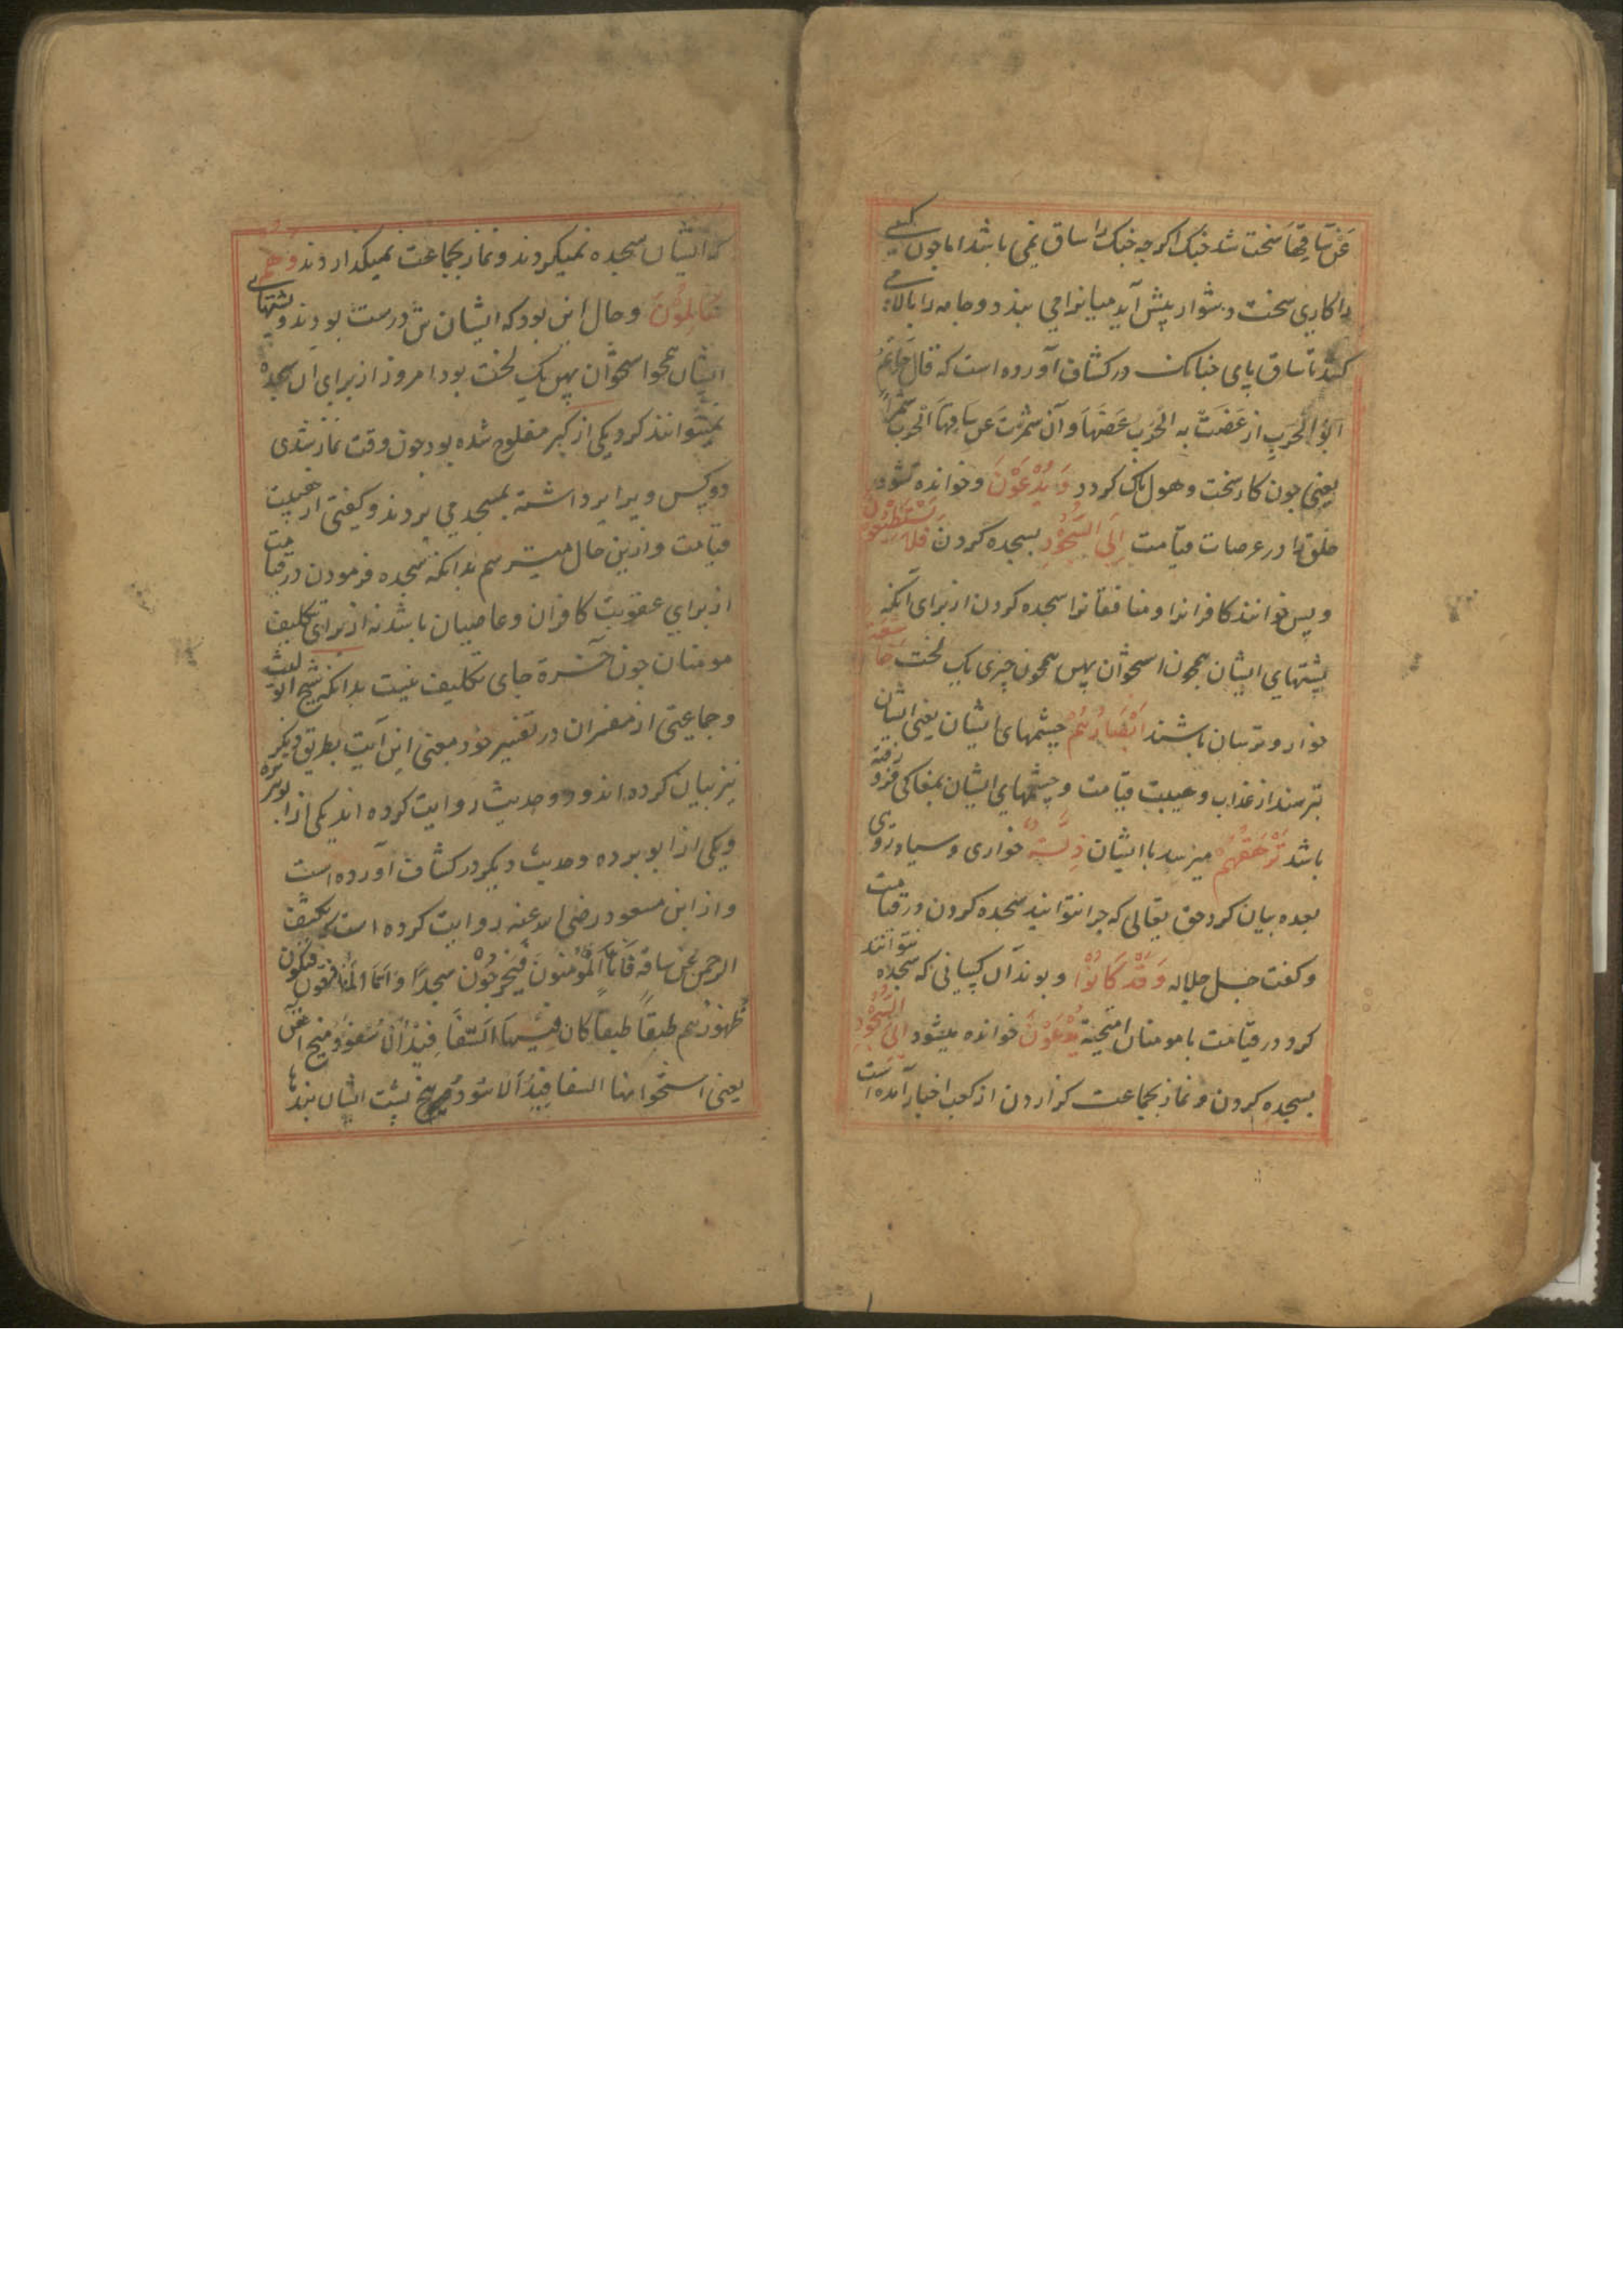 عَنْ سَاقِهَا سخت شد جنک اکرچه جنک را ساق نمی باشد اما چون کسی
را کاری سخت دشوار پیش آید میانرا می بندد و جامه را بالا می
کند تا ساق پای چنانک در کشاف آورده است که قال حاتم
الحرب از عضت به الحرب عضها و ان شمرت عن ساقها الحرب شمرا
یعنی چون کار سخت و هولناک کردد وَيُدْعَوْنَ و خوانده شود
خلق را در عرصات قیامت اِلَى السُّجُودِ بسجده کردن فَلَا يَسْتَطِيعُونَ
و پس نتوانند کافرانرا و منافقانرا سجده کردن از برای آنکه
پشتهای ایشان همچون استخوان پهن همچون چیزی یک لخت خَاشِعَةً
خوار و ترسان باشند اَبْصَارُهُمْ چشمهای ایشان یعنی ایشان
بترسند از عذاب و هیبت قیامت و چشمهای ایشان بمغاکی فرو رفته
باشد تَرْهَقُهُمْ میرسد با ایشان ذِلَّةٌ خواری و سیاه روی
بعده بیان کرد حق تعالی که چرا نتوانند سجده کردن در قیامت
و کفت جل جلاله وَقَدْ كَانُوْا و بودند آن کسانی که سجده نتوانند
کرد در قیامت با مومنان آمیخته يُدْعَوْنَ خوانده میشود اِلَى السُّجُوْدِ
بسجده کردن و نماز بجماعت کزاردن از کعب اخبار آمده است
که ایشان سجده نمیکردند و نماز بجماعت نمیکذاردند وَهُمْ
سَالِمُوْنَ و حال این بود که ایشان تن درست بودند و پشتهای
ایشان همچو استخوان پهن یک لخت بود امروز از برای آن سجده
نمیتوانند کرد یکی از کبر مفلوج شده بود چون وقت نماز شدی
دو کس ویرا برداشته بمسجد می بردند و کیفتی از هیبت
قیامت و ازین حال میترسم بدانکه سجده فرمودن در قیامت
از برای عقوبت کافران و عاصیان باشد نه از برای تکلیف
مومنان چون آخرة جای تکلیف نیست بدانکه شیخ ابو لیث
و جماعتی از مفسران در تفسیر خود معنی این آیت بطریق دیکر
نیز بیان کرده اند و دو حدیث روایت کرده اند یکی از ابو هریره
و یکی از ابو برده و حدیث دیکر در کشاف آورده است
و از ابن مسعود رضی الله عنه روایت کرده است یکشف
الرحمن عن ساقه فاما المؤمنون فیخرجون سجدا و اما المنافقون فتکون
ظهورهم طبقا طبقا کان فیها السفافید
یعنی استخوانها السفافید پشت ایشان